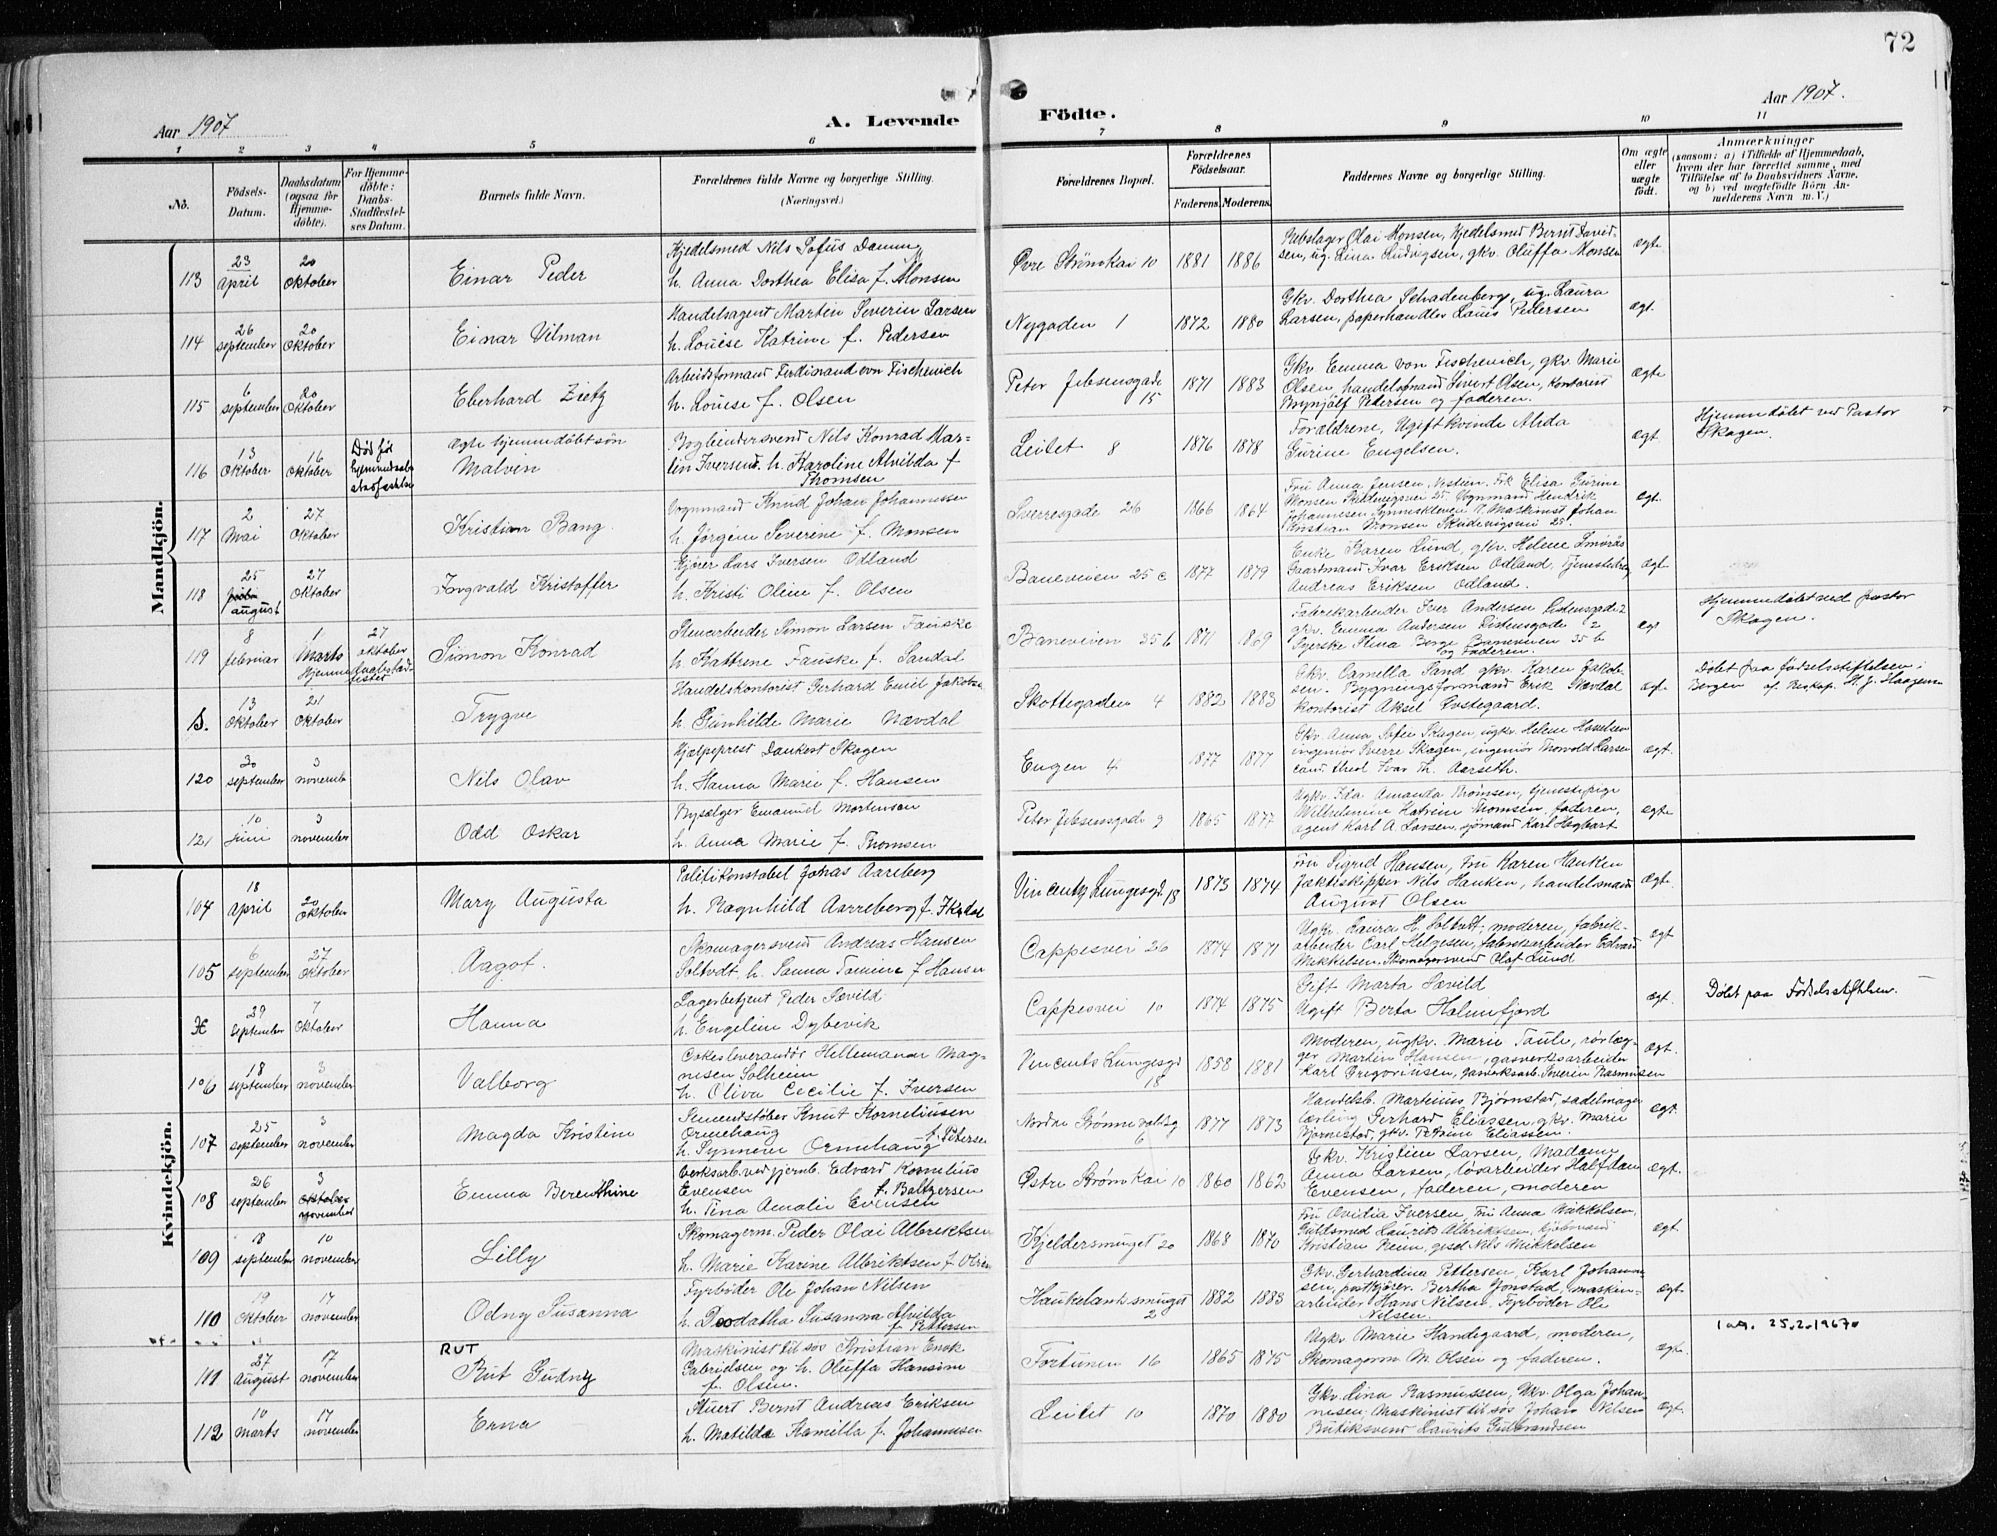 72
Aar 1907
A. Levende
Födte.
Aar 1907.
1 2 3 4 5 6 7 8 9 10 11
No.
Födsels-
Datum.
Daabsdatum
(ogsaa for
Hjemme-
döbte).
For Hjemme-
döbte:
Daabs-
Stadfæstel-
ses Datum.
Barnets fulde Navn.
Forældrenes fulde Navne og borgerlige Stilling.
(Næringsvei.)
Forældrenes Bopæl.
Forældrenes
Födselsaar.
Faderens. Moderens.
Faddernes Navne og borgerlige Stilling.
Om ægte
eller
uægte
födt.
Anmærkninger
(saasom: a) i Tilfælde af Hjemmedaab,
hvem der har forrettet samme, med
Tilföielse af to Daabsvidners Navne,
og b) ved uægtefödte Börn An-
melderens Navn m. V.)
Mandkjön.
113 23 April 20 Oktober Einar Peder
Kjedelsmed Nils Sofus Danning
h. Anna Dorthea Elisa f. Monsen
Øvre Strømkai 10 1881 1886
Rebslager Olai Monsen, Kjedelsmed Bernt David-
sen, ug. Lina Ludvigsen, gkv. Oluffa Monsen
ægte
114 26 september 20 Oktober Einar Vilman
Handelsagent Martin Severin Larsen
h. Louise Katrine f. Pedersen
Nygaden 1 1872 1880
Gkv. Dorthea Schadenberg, ug. Laura
Larsen, paperhandler Laus Pedersen
ægt.
115 6 september 20 Oktober Eberhard Zietz
Arbeidsformand Ferdinand von Fischenich
h. Louise f. Olsen
Peter Jebsensgade 15 1871 1883
Gkv. Emma von Fischenich, gkv. Marie
Olsen, handelsmand Sivert Olsen, kontorist
Brynjälf Petersen og faderen.
ægte
116 13 Oktober 16 Oktober
Død før
hjemmedaabs
stadfæstelse
ægte hjemmedøbt søn
Malvin
Bogbindersvend Nils Konrad Mar-
tin Iversen. h. Karoline Alvilda f
Thomsen
Leitet 8 1876 1878
Forældrene, Ugift kvinde Alida
Gurine Engelsen.
ægt
Hjemmedøbt ved Pastor
Skagen.
117 2 Mai 27 Oktober Kristian Bang.
Vognmand Knud Johan Johannessen
h. Jörgine Severine f. Monsen
Sverresgade 26 1866 1864
Fru Anna Jensen, Nestien. Frk Elisa Gurine
Monsen Skudevigsvei 25. Vognmand Hendrik
Johannesen Maskinist Johan
Kristian Monsen Skudevigsvei 25.
ægt.
118 25 august 27 Oktober Ingvald Kristoffer
Kjører Lars Iversen Odland
h. Kristi Oline f. Olsen
Baneveien 25 c 1877 1879
Enke Karen Lund, gkv. Helene Smøraas
Gaardmand Ivar Eriksen Odland, Tjenestedreng
Andreas Eriksen Odland.
ægt
119 8 februar 1 Marts 27 oktober Simon Konrad
Stenarbeider Simon Larsen Fauske
h. Kattrine Fauske f. Sandal
Baneveien 35 b 1871 1869
Fabrikarbeider Iver Andersen
gkv. Emma Andersen
Syerske Stina Berge Baneveien 35 b
og Faderen.
ægt
Hjemmedøbt ved pastor
Skagen.
S. 13 Oktober 21 Oktober Trygve
Handelskontorist Gerhard Emil Jakobse
h. Gunhilde Marie Nævdal
Skottegaden 4 1882 1883
Gkv. Camella Sand gkv. Karen Jakob-
sen. Bygningsformand Erik Skovdal
kontorist Aksel Østegaard.
ægt
Døbt paa fødselsstiftelsen i
Bergen af Reskap. H. J. Haagens
120 30 september 3 november Nils Olav
Hjælpeprest Dankert Skagen
h. Hanna Marie f. Hansen
Engen 4 1877 1877
Gkv. Anna Sofie Skagen, ugkv. Helene Hasselsen
ingeniør Sverre Skagen, ingeniør Morvold Larsen
cand. theol Ivar Th. Aarseth.
ægt.
121 10 Juni 3 november Odd Oskar
Bysælger Emanuel Mortensen
h. Anna Marie f. Thomsen
Peter Jebsensgade 9 1865 1877
Ugkv. Ida Amanda Thomsen, tjenestepige
Wilhelmine Katrine Thomsen, faderen,
agent Karl A. Larsen, sjømand Karl Hagbart
ægte
Kvindekjön.
104 18 April 20 Oktober Mary Augusta
Politikonstabel Johas Aarreberg
h. Ragnhild Aarreberg f. Ikdal
Vincents Lungesgd 18 1873 1874
Fru Sigrid Hansen, Fru Karen Hauken
Jaktskipper Nils Hauken, handelsmand
August Olsen
ægt.
105 6 september 27 Oktober Aagot.
Skomagersvend Andreas Hansen
Soltvedt, h. Sanna Tomine f Hansen
Cappesvei 26 1874 1871
Ugkv. Laura H. Soltvdt, moderen, fabrik-
arbeider Carl Helgesen, fabrikarbeider Edvard
Mikkelsen. Skomagersvend Olaf Lund
ægt
H 29 September 7 Oktober Hanna
Lagerbetjent Peder Sævild
h. Engeline Dybevik
Cappesvei 10 1874 1875
Gift Marta Sævild
Ugift Berta Holmefjord
ægt.
Døbt paa Fødselsstiftelsen.
106 18 september 3 november Valborg
Cokesleverandør Hellemanar Mag-
nesen Solheim
h. Oliva Cecilie f. Iversen
Vincents Lungesgd 18 1858 1881
Moderen, ugkv. Marie Taule, rørlæg-
ger Martin Hansen, gasverksarbeider
Karl Gregoriusen, gasverksarb. Severin Rasmusen
ægt.
107 25 september 3 november Magda Kristine
Sementstøber Knut Korneliusen
Ormehaug
h. Synneve Ormhaug f. Petersen
Nordre Strømvoldsg 6 1877 1873
Handelsb. Martinius Bjørnstad, sadelmager
lærling Gerhard Eliassen, gkv. Marie
Bjørnestad, gkv. Petrine Eliassen.
ægt.
108 26 september 3 oktober november Emma Berenthine
Verksarb. ved jernb. Edvard Kornelius
Evensen f. Baltzersen
h. Tina Amalie Evensen
Østre Strømkai 10 1860 1862
Gkv. Kristine Larsen, Madame
Anna Larsen, løsarbeider Halfdan
Evensen, faderen, moderen
ægt.
109 18 september 10 november Lilly
Skomagerm. Peder Olai Albriktsen
h. Marie Karine Albriktsen f. Olsen
Kjeldersmuget 20 1868 1870
Fru Ovidia Iversen, Fru Anna Mikkelsen,
Guldsmed Laurits Albriktsen, kjøbmand
Kristian Reim, gesel Nils Mikkelsen
ægt
110 19 Oktober 17 november Odny Susanna
Fyrbøder Ole Johan Nilsen
h. Dodatha Susanna Alvilda
f. Pettersen
Haukelandsmuget 2 1882 1883
Gkv. Gerhardina Pettersen, Karl Johanne-
sen, postkjører. Bertha Jonstad, maskin-
arbeider Hans Nilsen. Fyrbøder Ole
Nilsen.
ægt.
111 27 August 17 november
RUT
Rut Gudny
Maskinist til søs Kristian Enok
Gabrielsen og h. Oluffa Hansine
f. Olsen.
Fortunen 16 1865 1875
Ugkv. Marie Handegaard, moderen,
Skomagerm M. Olsen og faderen.
ægt.
25.2.1967
112 10 Marts 17 november Erna
Stuert Bernt Andreas Eriksen
h. Matilda Kamilla f. Johannesen
Leitet 10 1870 1880
Gkv. Lina Rasmussen, Ukv. Olga Johan-
nesen. Maskinist til søs Johan Nilsen
Butiksvend Laurits Gulbrandsen
ægt.